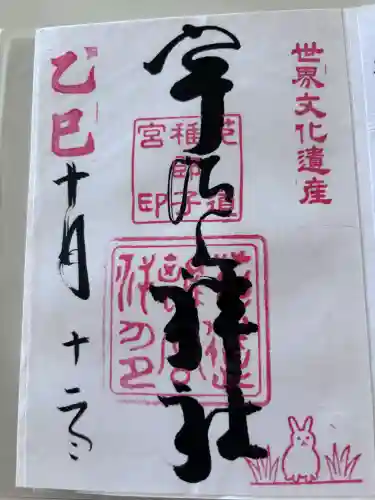 世界文化遺産
宇治上神社
菟道
稚郎子
宮印
乙巳十月十二日